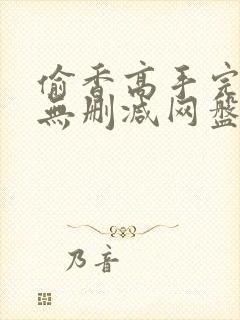 偷香高手完
無删减网盘
乃音